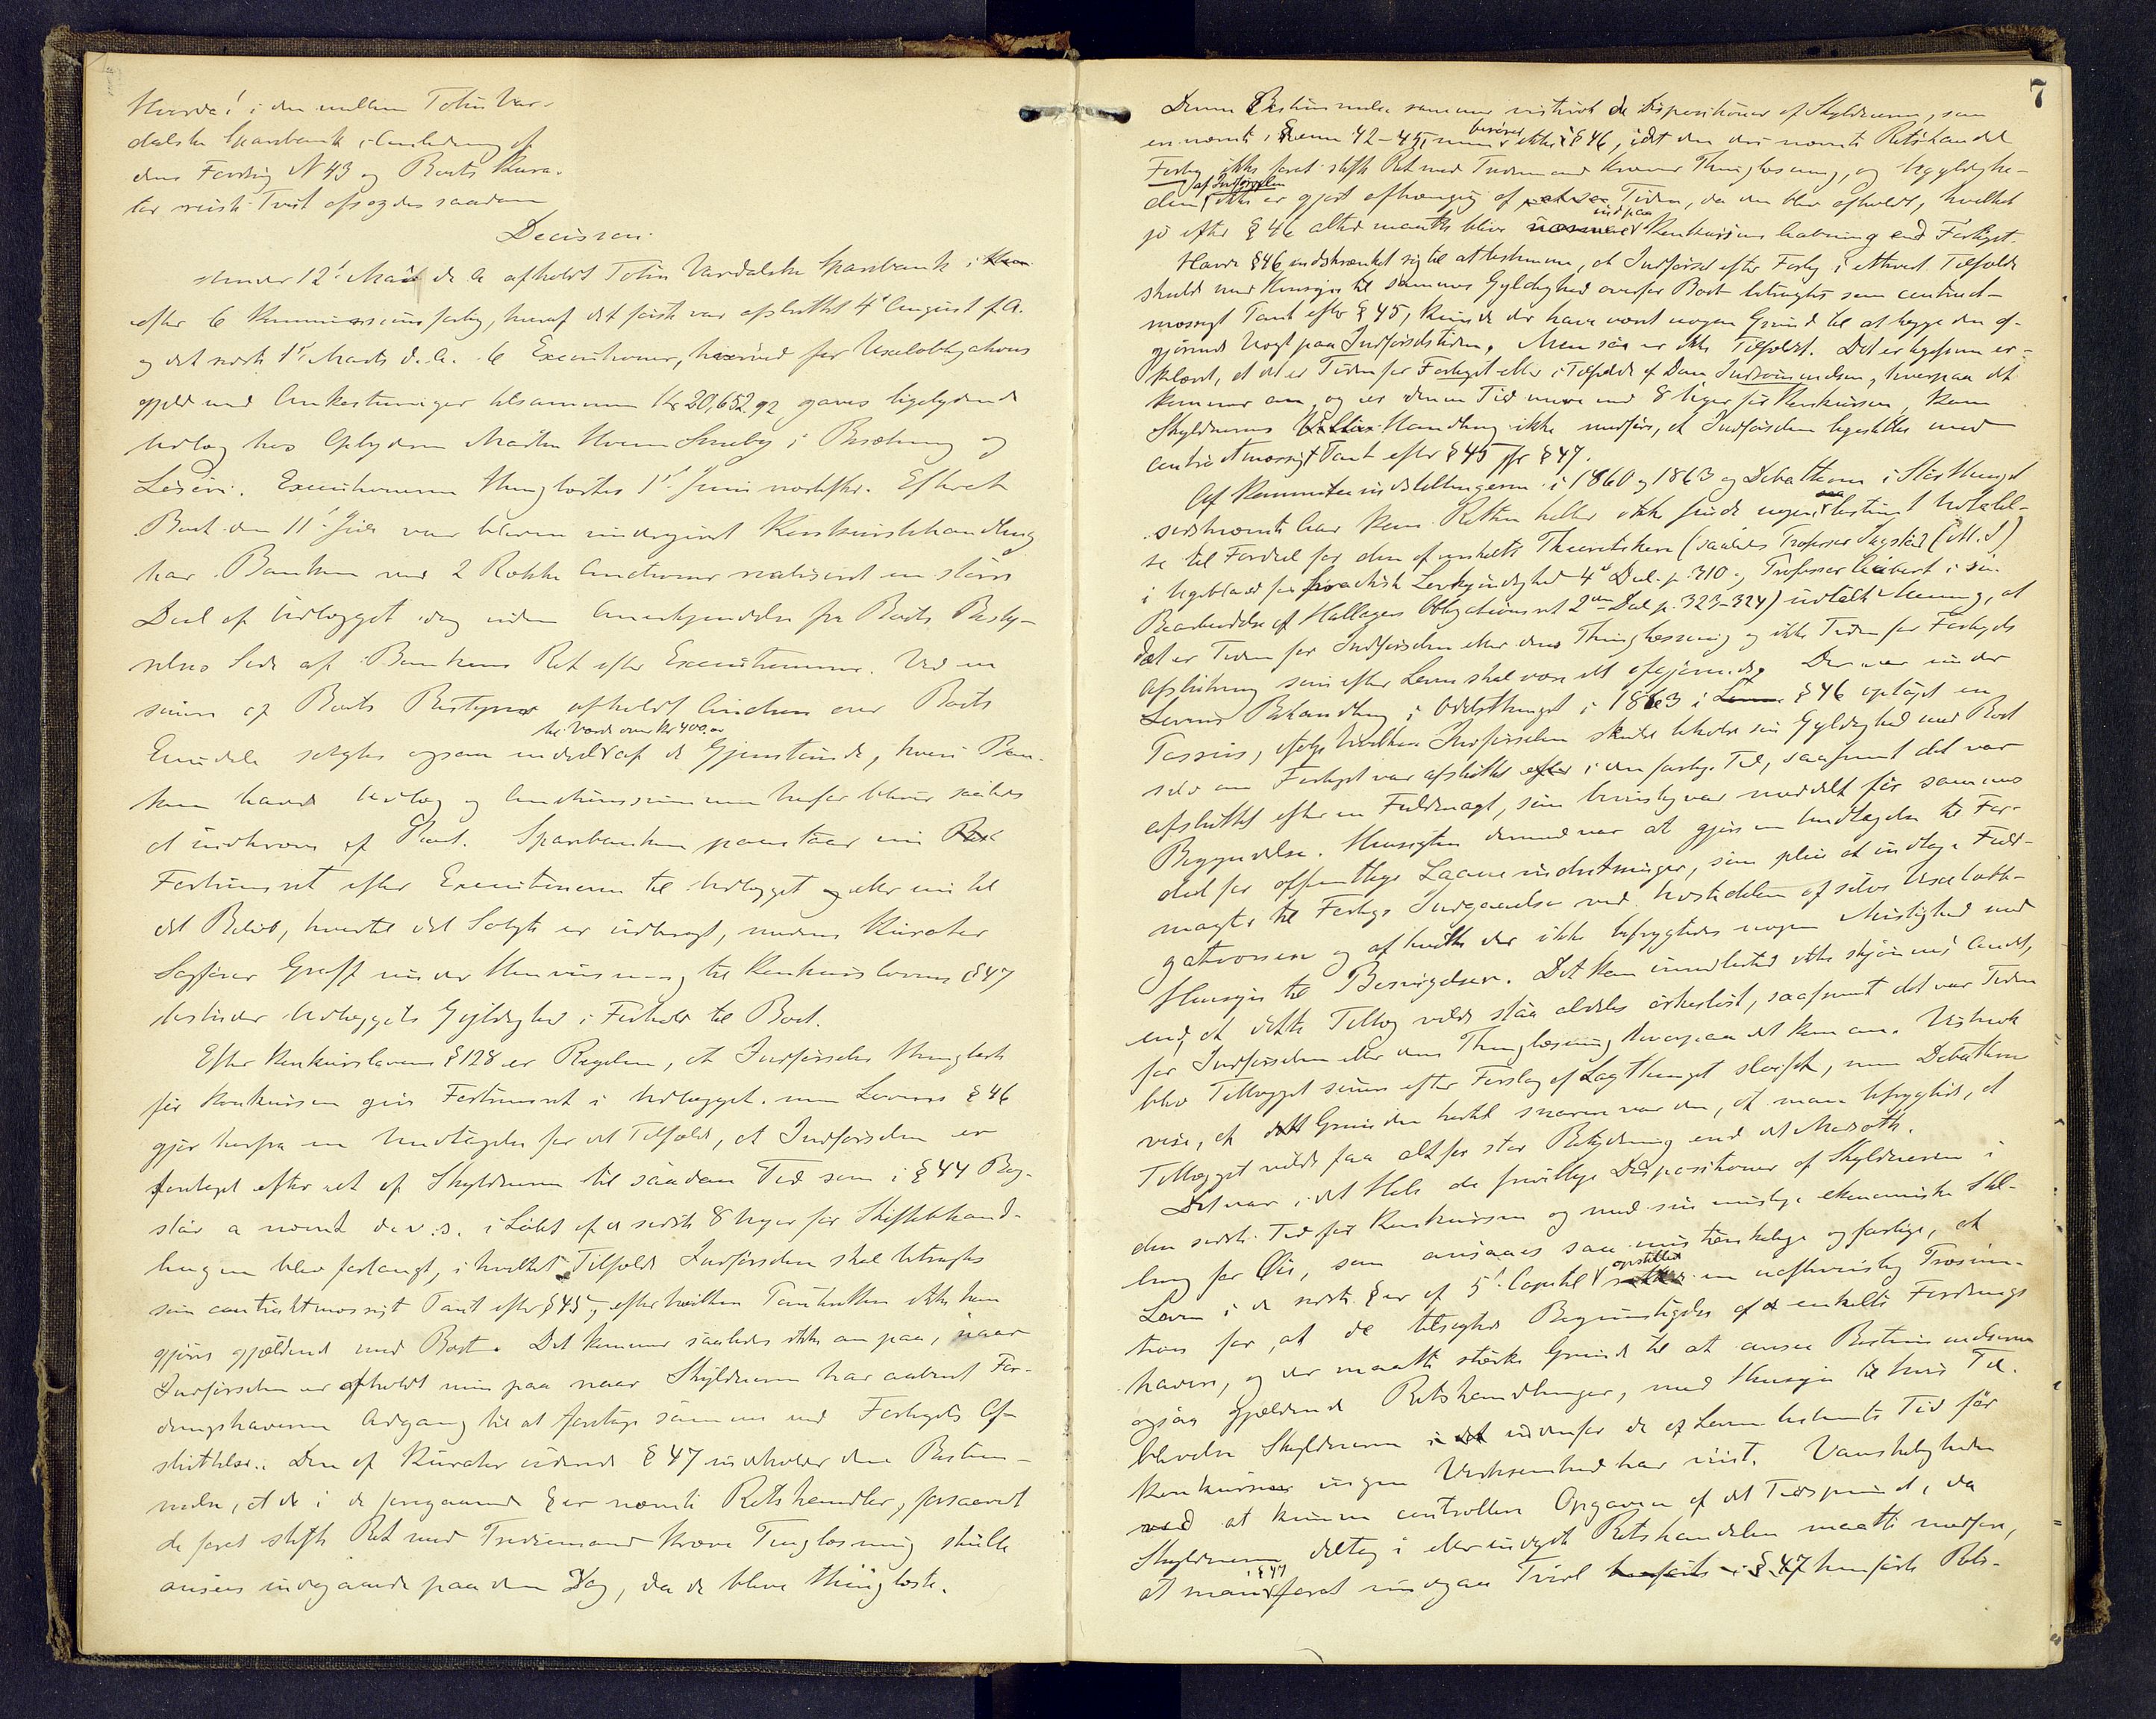 Hvorda! i den mellem Totens Var-
dalske Sparebank i Anledning af
dens Fordring N 43 og Boets Kura-
tor reiste Tvist afsagdes saadan
Decision.
Under 12te Mai d. A. afholdt Totens Vardalske Sparebank
efter 6 Kommissionsforlig, hvoraf det første var afsluttet 4de August f. A.
og det sidste 1ste Marts d. A. 6 Executioner, hvorved for Vexelobligations
gjeld med Omkostninger tilsammen Kr 20,652.92 gaves ligelydende
Udlæg hos Opbyderen Martin Hveem Smeby i Besætning og
Løsøre. Executionerne thinglæstes 1ste Juni næstefter. Efterat
Boet den 11te Juli var bleven undergivet Konkursbehandling
har Banken ved 2 Rækker Auctioner realiseret en større
Deel af Udlægget dog uden Anerkjendelse fra Boets Besty-
relses Side af Bankens Ret efter Executionerne. Ved en
senere af Boets Bestyrer afholdt Auction over Boets
til Værdi over Kr 400.00
Eiendele solgtes ogsaa endel af de Gjenstande, hvori Ban-
ken havde Udlæg og Auctionssummen herfor bliver saaledes
at indkræve af Boet. Sparebanken paastaar nu
Fortrinsret efter Executionerne til Udlægget og eller nu til
det Beløb, hvortil det Solgte er udbragt, medens Kurator
Sagfører Graff under Henvisning til Konkurslovens § 47
bestrider Udlæggets Gyldighed i Forhold til Boet.
Efter Konkurslovens § 128 er Regelen, at Indførsler thinglæste
før Konkursen giver Fortrinsret i Udlægget. men Lovens § 46
gjør herfra en Undtagelse for det Tilfælde, at Indførselen er
foretaget efter at af Skyldneren til saadan Tid som i § 44 Bog-
stav a nævnt d. v. s. i Løbet af de sidste 8 Uger før Skiftebehand-
lingen blev forlangt, i hvilket Tilfælde Indførselen skal betragtes
som contraktmæssigt Pant efter § 45, efter hvilken Panteretten ikke kan
gjøres gjældende mod Boet. Det kommer saaledes ikke an paa, naar
Indførselen er afholdt men paa naar Skyldneren har aabnet For-
dringshaveren Adgang til at foretage samme ved Forligets Af-
sluttelse. Den af Kurator citerede § 47 indeholder den Bestem-
melse, at de i de foregaaende §§er nævnte Retshandler, forsaavidt
de foret stifte Ret mod Trediemand kræve Tinglæsning skulle
ansees indgaaede paa den Dag, da de bleve thinglæste.
7
Denne Bestemmelse rammer vistnok de Dispositioner af Skyldneren, som
ere nævnte i §§erne 42-45, men berører ikke § 46, idet den der nævnte Retshandel
Forlig ikke foret stifte Ret mod Trediemand kræver Thinglæsning, og Ugyldighe-
den af Indførselen ikke er gjort afhængig af Tiden, da den blev afholdt, hvilket
jo efter § 46 altid maatte blive ind paa Konkursens Aabning end Forliget.
Havde § 46 indskrænket sig til at bestemme, at Indførsel efter Forlig i ethvert Tilfælde
skulde med Hensyn til sammes Gyldighed overfor Boet betragtes som contract-
mæssigt Pant efter § 45, kunde der have været nogen Grund til at lægge den af-
gjørende Vægt paa Indførselstiden. Men saa er ikke Tilfældet. Det er ligefrem er-
klæret, at det er Tiden for Forliget eller i Tilfælde af Dom Indrømmelsen, hvorpaa det
kommer an, og er denne Tid mere end 8 Uger før Konkursen, kan
Skyldnerens Handling ikke medføre, at Indførselen ligestilles med
contractmæssigt Pant efter § 45 jfr § 47.
Af Kommiteeindstillingerne i 1860 og 1863 og Debatterne i Storthinget
sidstnævnte Aar kan Retten heller ikke finde nogen saa bestemt Udtalel-
se til Fordeel for den af enkelte Theoretikere (saaledes Professor Ingstad (M. J)
i Ugeblad for practisk Lovkyndighed 4de Deel p. 310 og Professor Aubert i sin
Bearbeidelse af Hallagers Obligationsret 2den Deel p. 323-324) udtalte Mening, at
det er Tiden for Indførselen eller dens Thinglæsning og ikke Tiden for Forligets
Afslutning som efter Loven skal være det afgjørende. Der var under
Lovens Behandling i Odelsthinget i 1863 i § 46 optaget en
Passus, ifølge hvilken Indførselen skulde beholde sin Gyldighed mod Boet
selv om Forliget var afsluttet i den farlige Tid, saafremt det var
afsluttet efter en Fuldmagt, som bevislig var meddelt før sammes
Begyndelse. Hensigten dermed var at gjøre en Undtagelse til For-
deel for offentlige Laaneindretninger, som pleie at indtage Fuld-
magter til Forligs Indgaaelse ved Udstedelsen af selve Vexelobli-
gationerne og af hvilke der ikke befrygtedes nogen Mislighed med
Hensyn til Besvigelser. Det kan imidlertid ikke skjønnes andet,
end at dette Tillæg vilde staa aldelesørkesløst, saafremt det var Tiden
for Indførselen eller dens Thinglæsning hvorpaa det kom an. Vistnok
blev Tillægget senere efter Forslag af Lagthinget sløifet, men Debatterne
vise, at Grunden hertil snarere var den, at man befrygtede, at
Tillægget vilde faa altfor stor Betydning end det Modsatte.
Det var i det Hele de frivillige Dispositioner af Skyldneren i
den sidste Tid før Konkursen og med sin mislige økonomiske Stil-
ling for Øie, som ansaaes saa mistænkelige og farlige, at
Loven i de sidste §§er af 5te Capitel opstillede en uafbeviselig Præsum-
tion for, at de tilsigtede Begunstigelse af enkelte Fordrings
havere, og der maatte stærke Grunde til at ansee Bestemmelserne
ogsaa gjældende Retshandlinger, med Hensyn til hvis Til-
blivelse Skyldneren indenfor de af Loven bestemte Tid før
Konkursen ingen Virksomhed har viist. Vanskeligheden
ved at kunne controllere Opgaven af det Tidspunct, da
Skyldneren deltog i eller indgik Retshandelen maatte medføre,
at man i § 47 foret undgaa Tvivl henførte Rets-